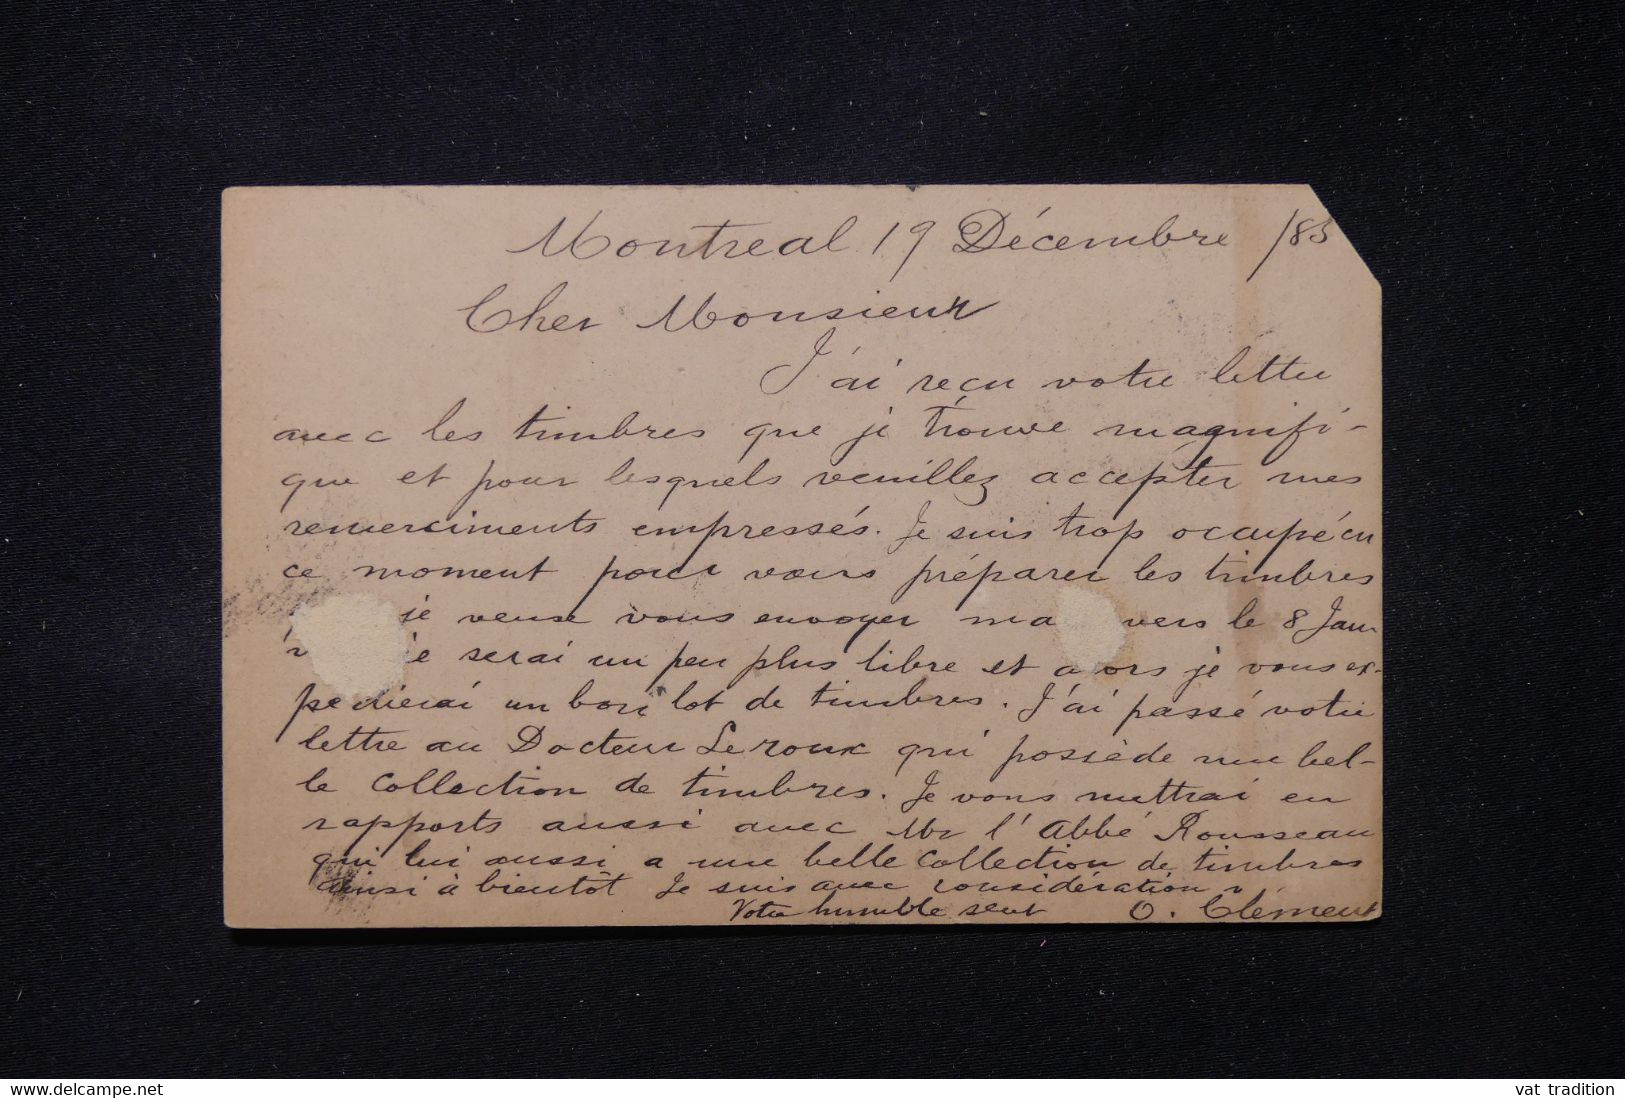 Montreal 19 Décembre /85
Cher Monsieur
J'ai reçu votre lettre
avec les timbres que je trouve magnifi-
que et pour lesquels veuillez accepter mes
remerciments empressés. Je suis trop occupé en
ce moment pour vous préparer les timbres
je veuse vous envoyer ma vers le 8 Jan
je serai un peu plus libre et alors je vous ex-
pedierai un bon lot de timbres. J'ai passé votre
lettre au Docteur Leroux qui possède une bel-
le collection de timbres. Je vous mettrai en
rapports aussi avec Mr l'Abbé Rousseau
qui lui aussi a une belle collection de timbres
ainsi à bientôt Je suis avec considération
Votre humble sert O. Clément
www.delcampe.net
vat_tradition